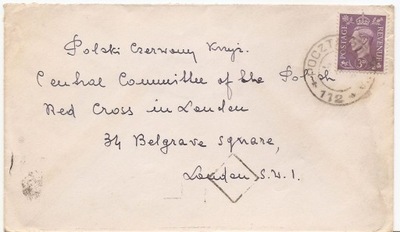 Polski Czerwony Krzyż.
Central Committee of the Polish
Red Cross in London
34 Belgrave Square,
London S.W.1.
POSTAGE
REVENUE
POCZTA
112